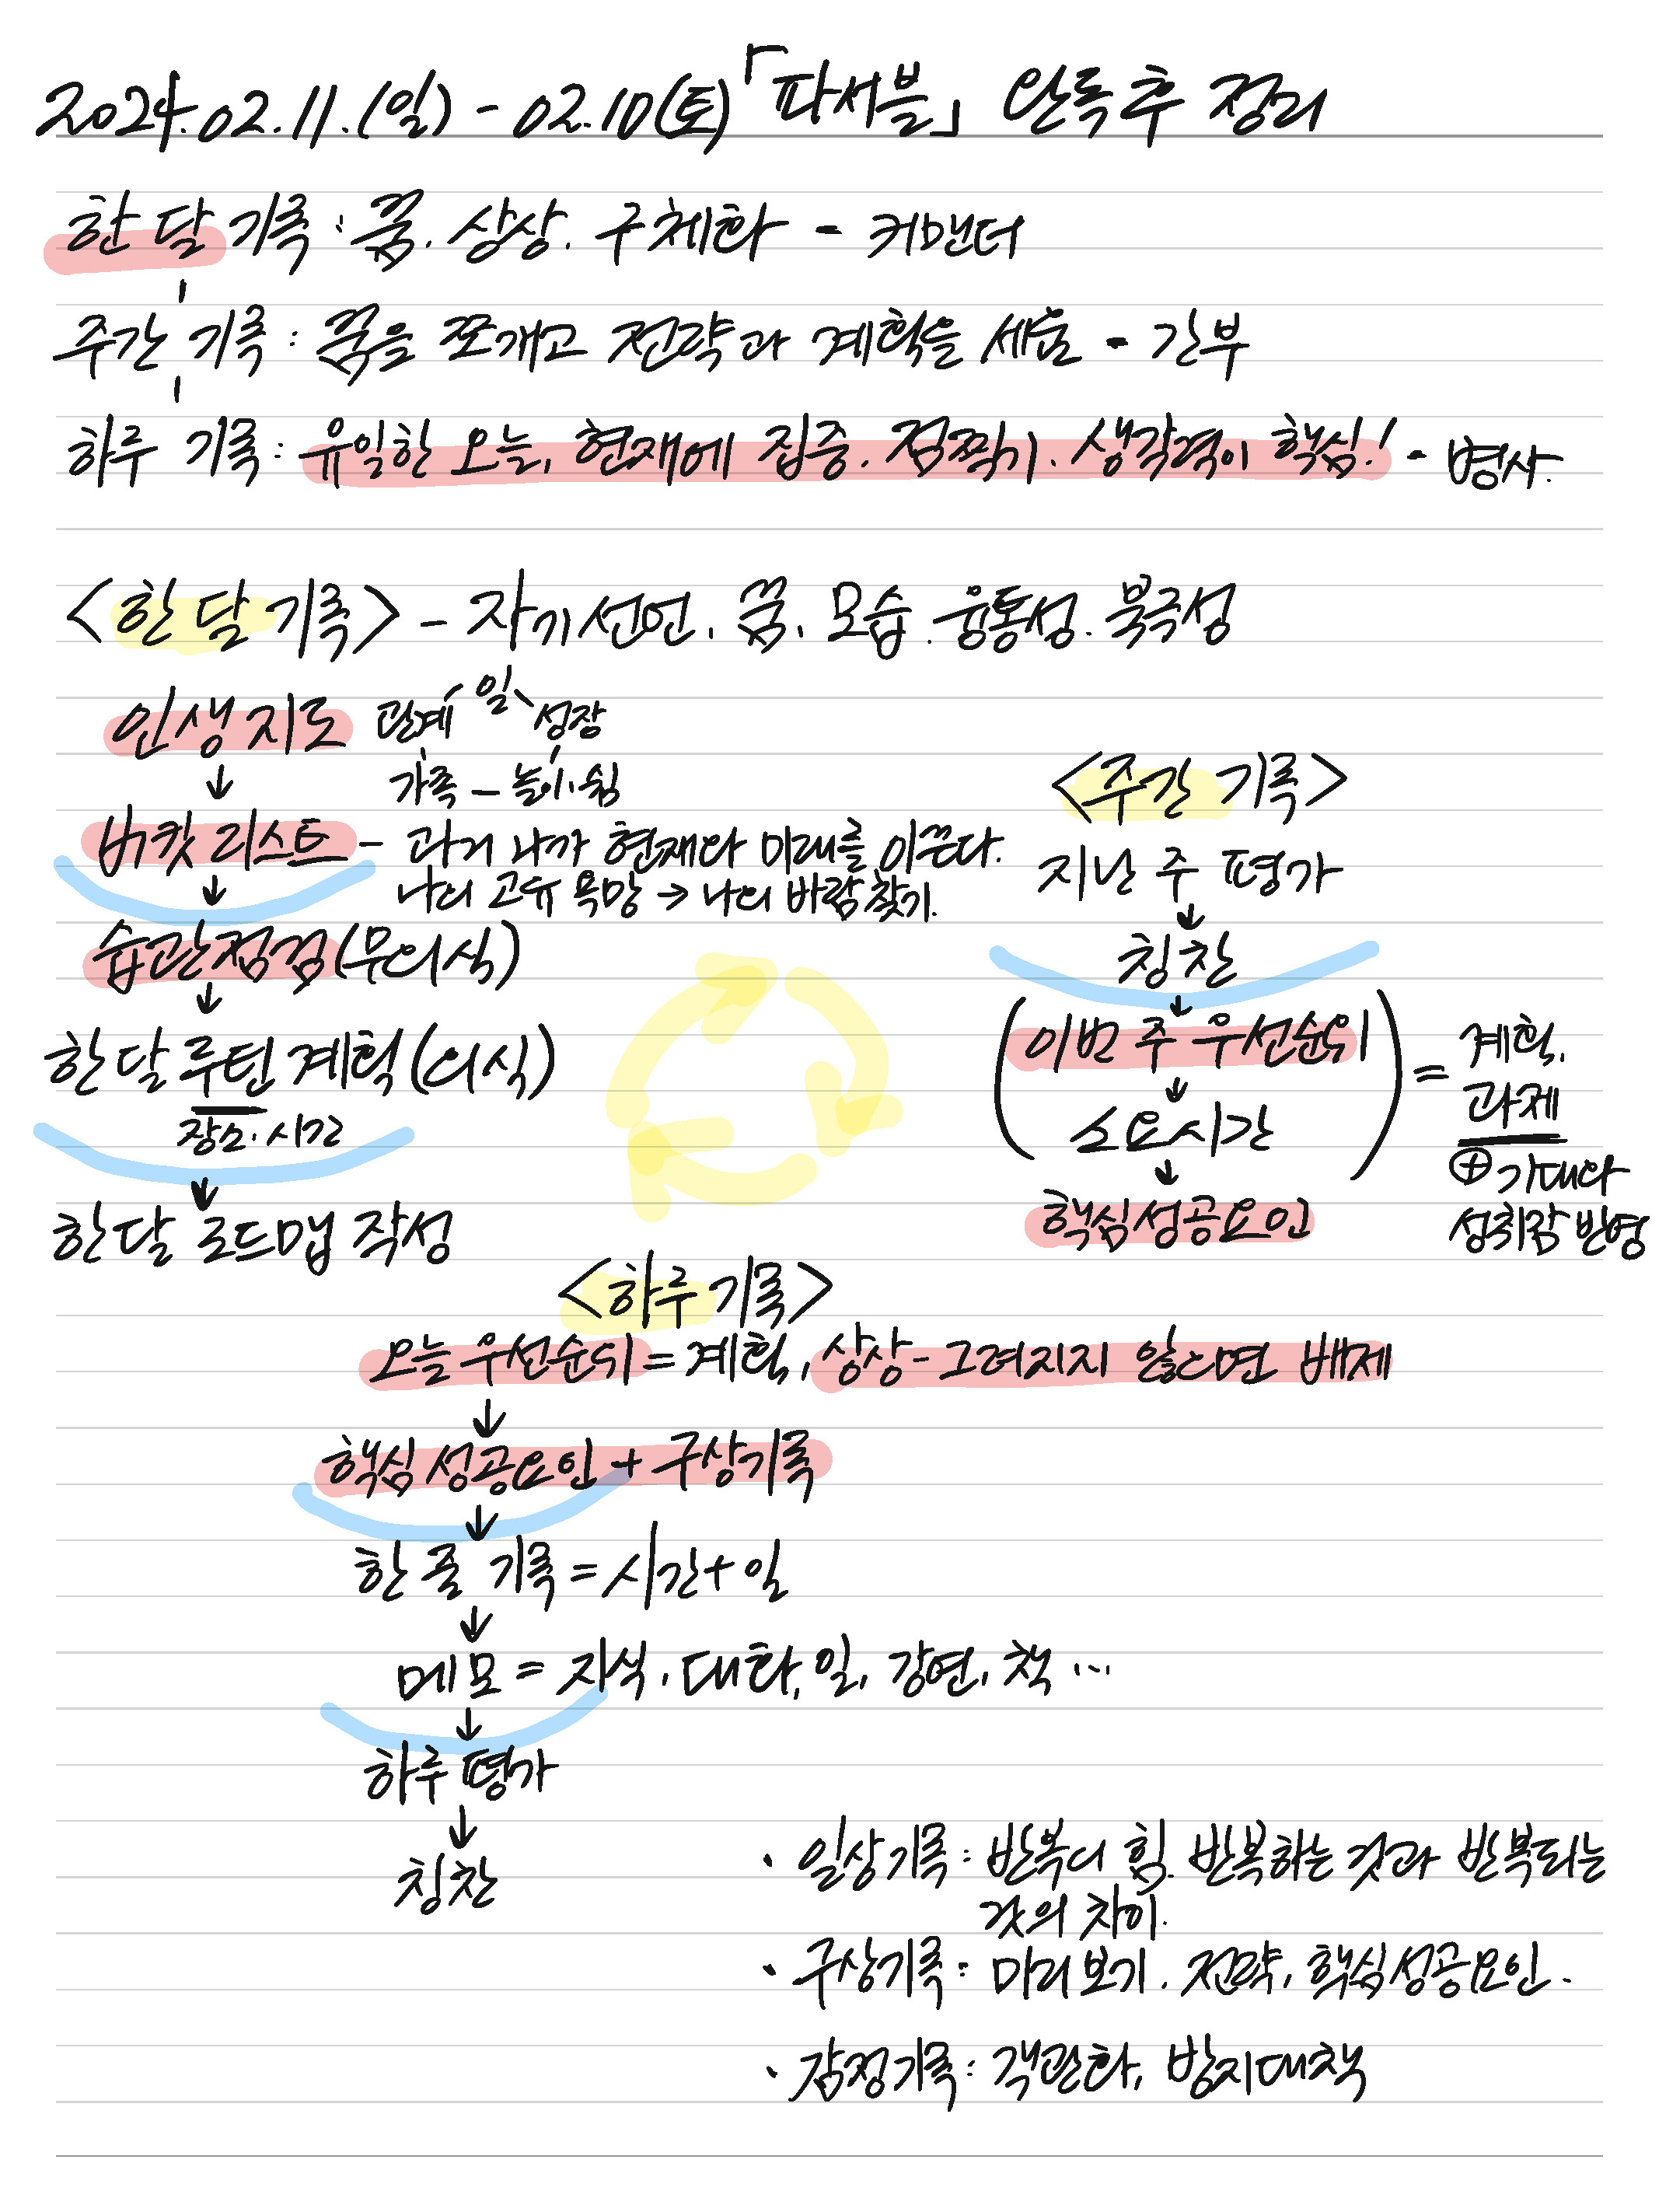 2024.02.11.(일) - 02.10(토) 「파서블」 완독 후 정리
한 달 기록 : 꿈. 상상. 구체화 - 커맨더
주간 기록 : 꿈을 쪼개고 전략과 계획을 세움 - 간부
하루 기록 : 유일한 오늘, 현재에 집중. 점찍기. 생각력이 핵심! - 병사.
<한 달 기록> - 자기선언, 꿈, 모습. 융통성. 북극성
인생 지도
관계 일 성장
가족 - 놀이·쉼
↓
버킷 리스트 - 과거 나가 현재와 미래를 이끈다.
나의 고유 욕망 → 나의 바람 찾기.
↓
습관점검(무의식)
↓
한 달 루틴 계획(의식)
장소·시간
↓
한 달 로드맵 작성
<주간 기록>
지난 주 평가
↓
칭찬
↓
(이번 주 우선순위
↓
소요시간) = 계획, 과제
⊕ 기대와
성취감 반영
↓
핵심성공요인
<하루 기록>
오늘 우선순위 = 계획, 상상 - 그려지지 않다면 배제
↓
핵심 성공요인 + 구상기록
↓
한 줄 기록 = 시간 + 일
↓
메모 = 지식, 대화, 일, 강연, 책 ...
↓
하루 평가
↓
칭찬
· 일상기록 : 반복의 힘. 반복하는 것과 반복되는
것의 차이.
· 구상기록 : 미리 보기. 전략, 핵심성공요인.
· 감정기록 : 객관화, 방지대책